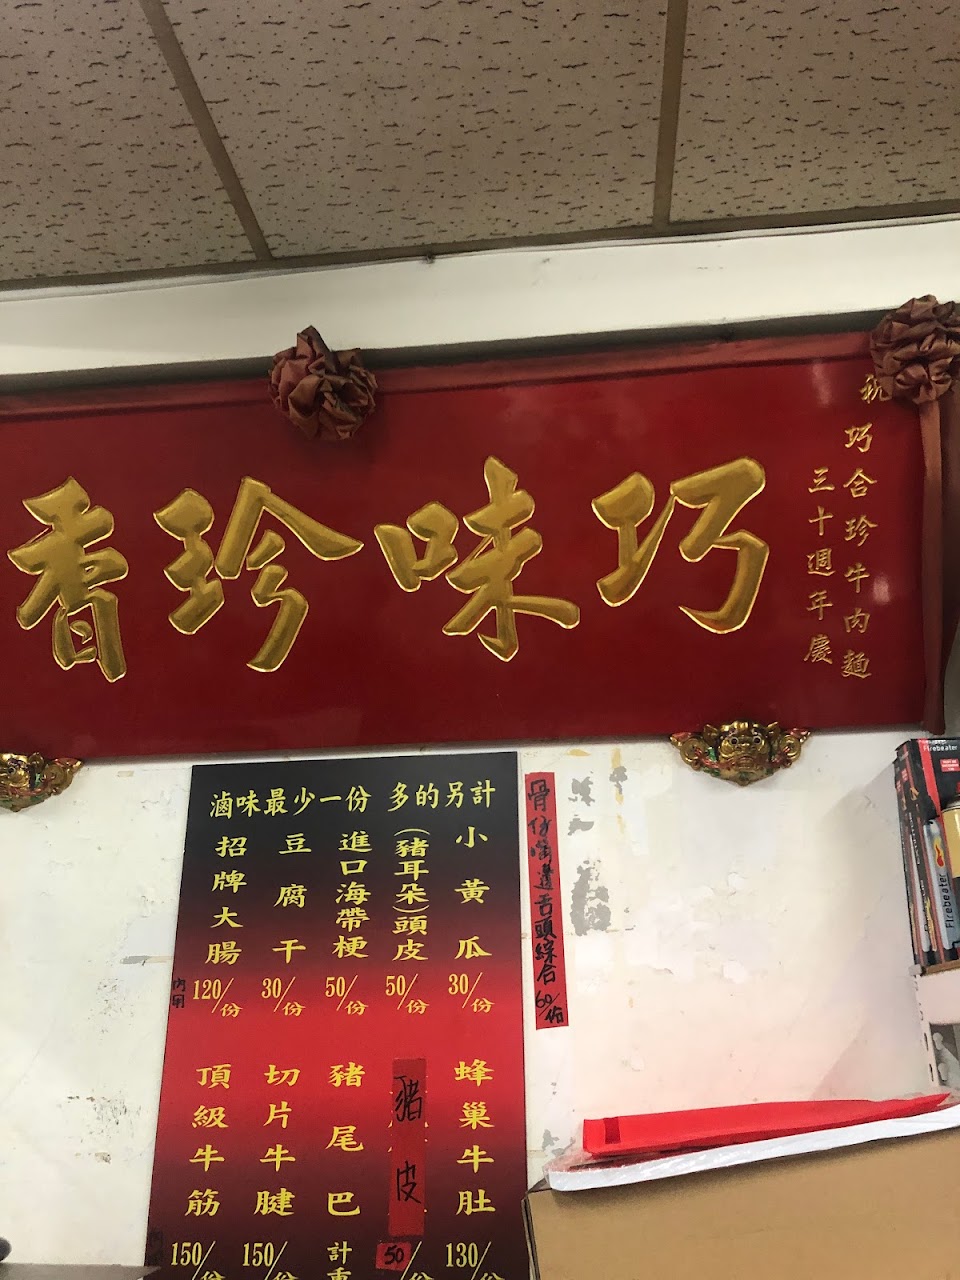 祝
巧合珍牛肉麵
三十週年慶
巧味珍香
滷味最少一份 多的另計
小黃瓜 30/份
(豬耳朵)頭皮 50/份
進口海帶梗 50/份
豆腐干 30/份
招牌大腸 120/份
內用
蜂巢牛肚 130/份
豬皮 50/份
豬尾巴 計重
切片牛腱 150/份
頂級牛筋 150/份
骨仔肉 邊舌頭綜合 60/份
Firebeater
Firebeater
Firebeater